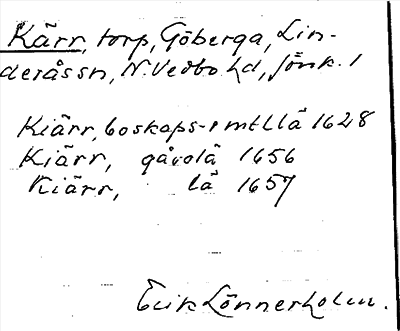 Kärr, torp, Göberga, Lin-
deråssn, N. Vedbo hd, Jönk. l
Kiärr, boskaps- mtl lä 1628
Kiärr, gårdlä 1656
Kiärr, lä 1657
Erik Lönnerholm.